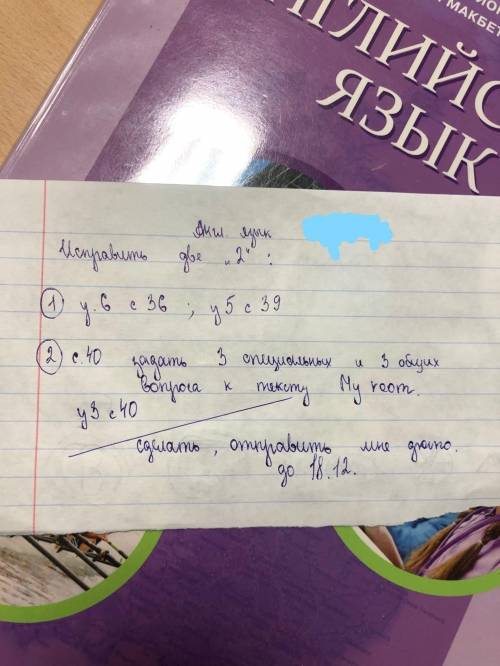 МАКБЕТ
АНГЛИЙС
ЯЗЫК
Англ. язык
Исправить две „2“:
① у.6 с 36 ; у5 с 39
② с.40 задать 3 специальных и 3 общих
вопроса к тексту My room.
у3 с40
сделать, отправить мне фото.
до 18.12.